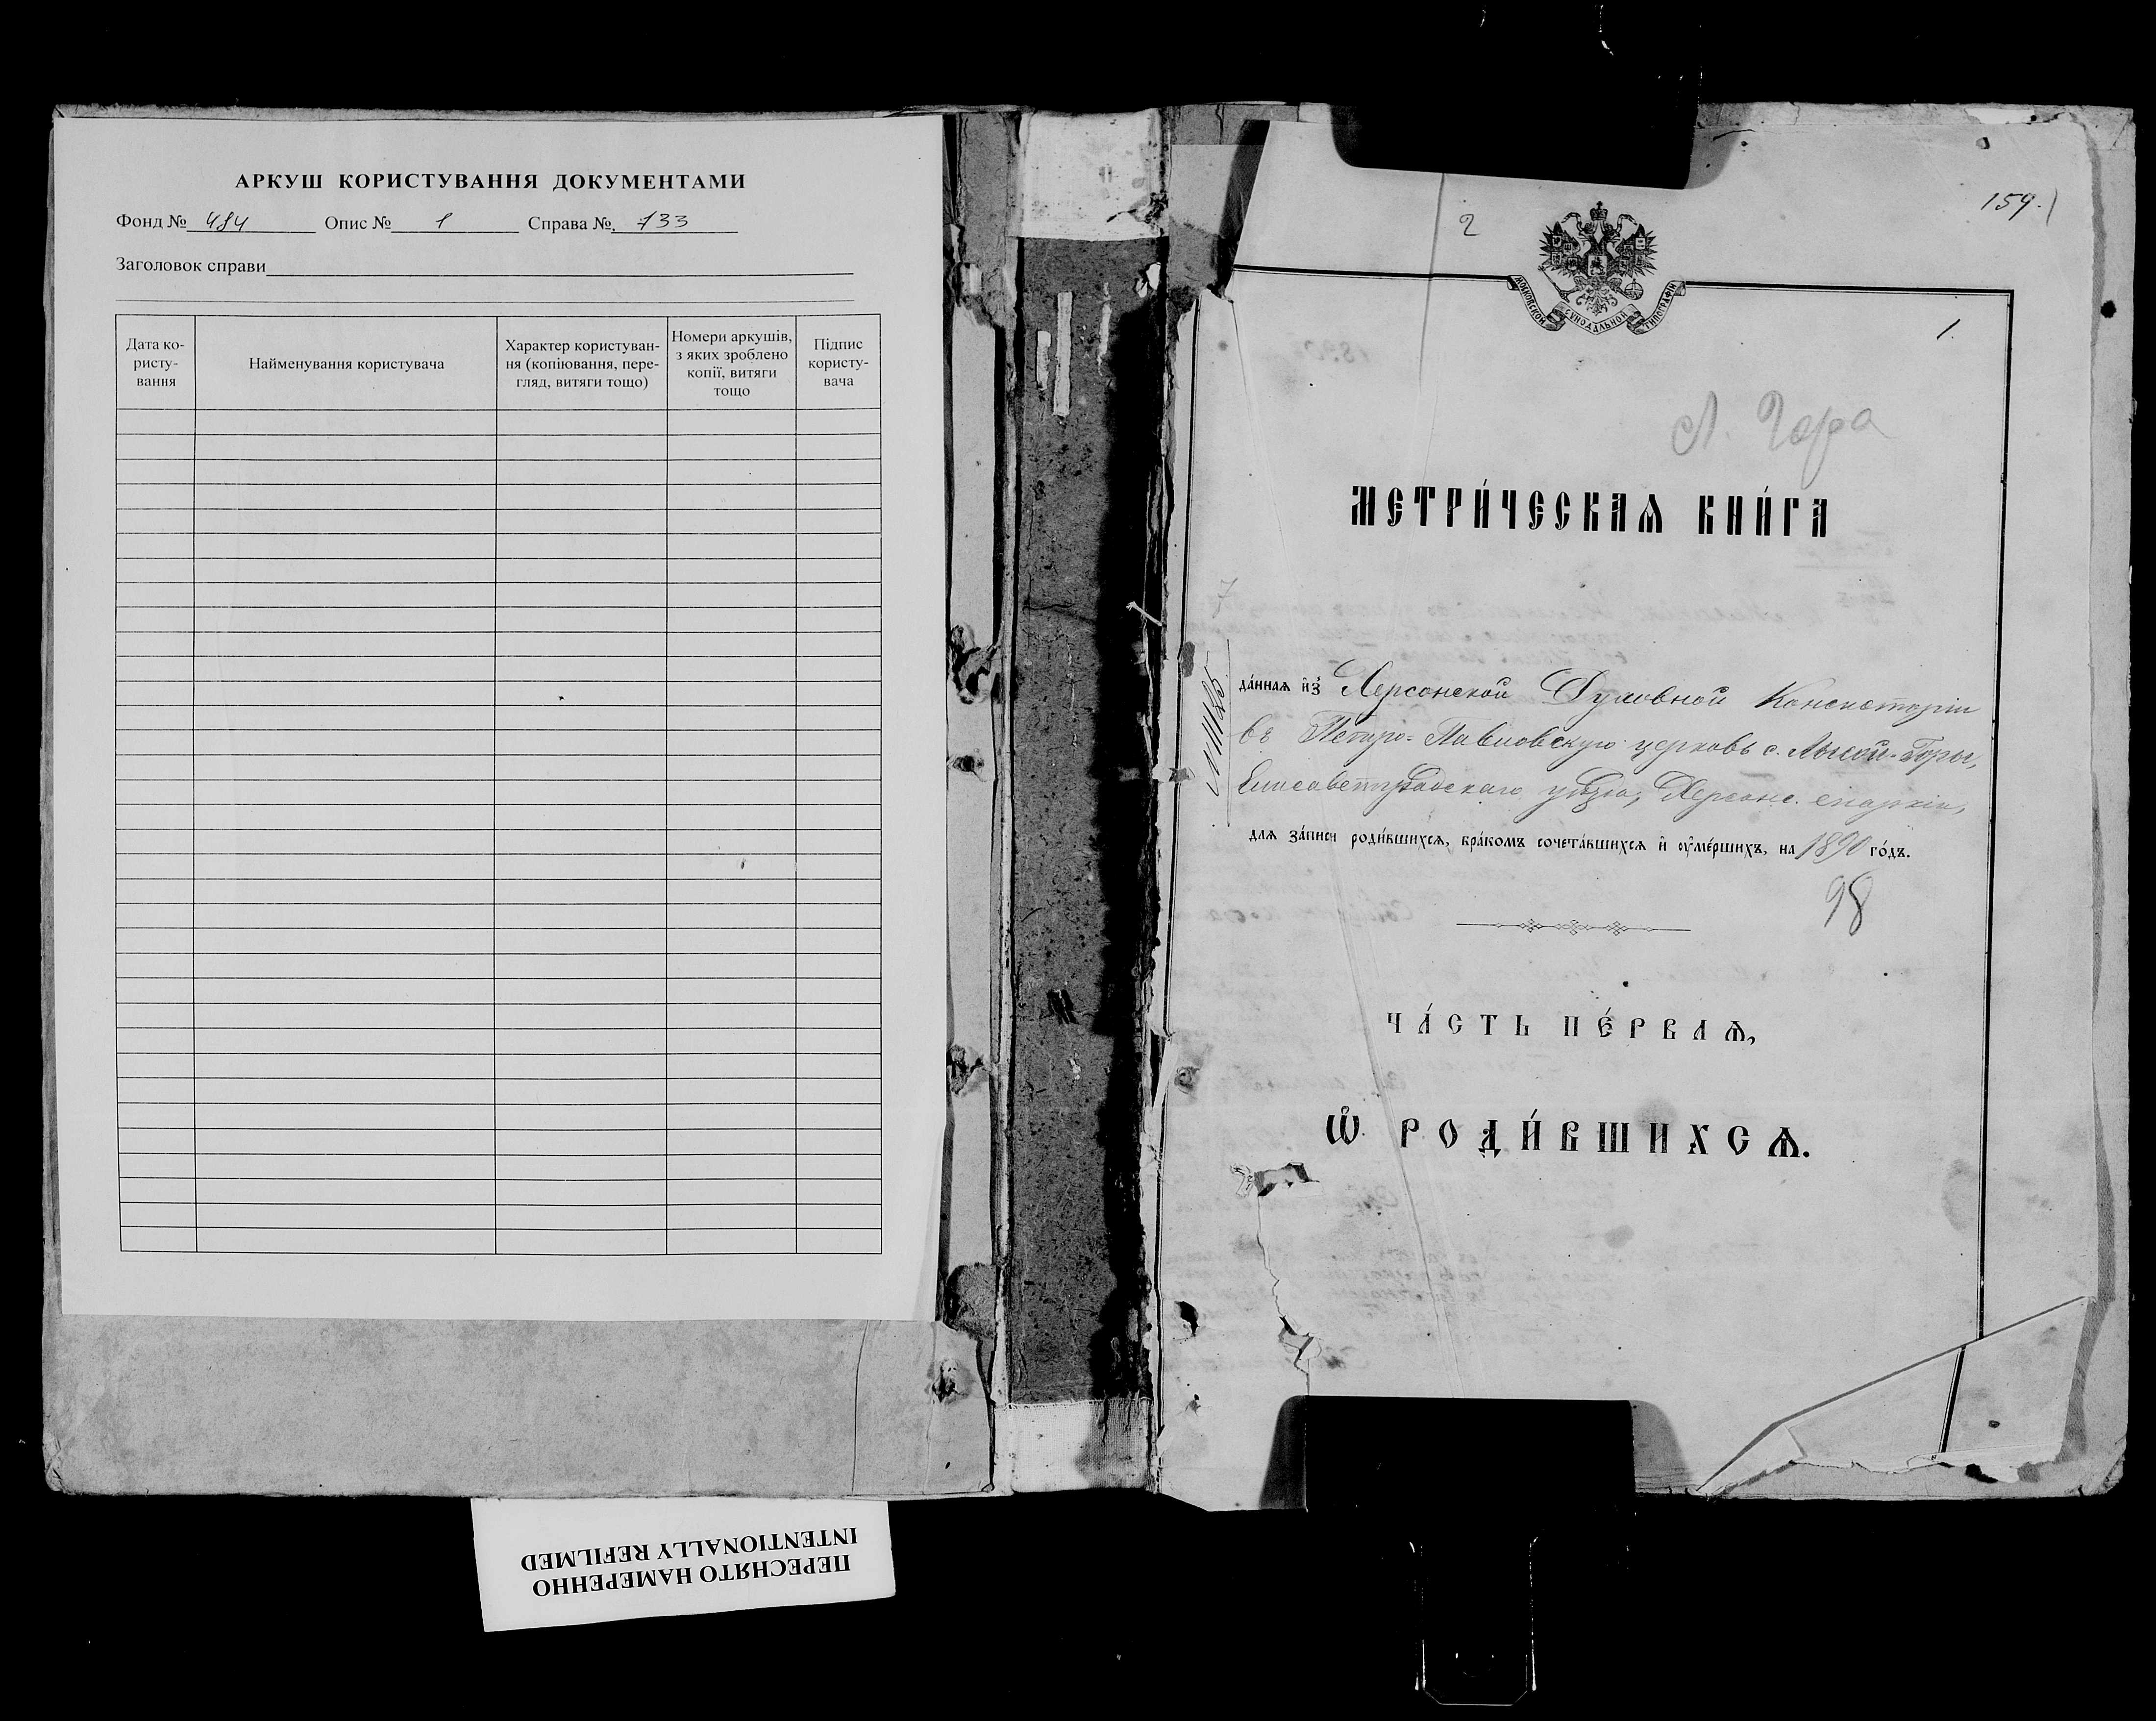 АРКУШ КОРИСТУВАННЯ ДОКУМЕНТАМИ
Фонд № 484 Опис № 1 Справа № 733
Заголовок справи
Дата ко-
ристу-
вання
Найменування користувача
Характер користуван-
ня (копіювання, пере-
гляд, витяги тощо)
Номери аркушів,
з яких зроблено
копії, витяги
тощо
Підпис
користу-
вача
ПЕРЕСНЯТО НАМЕРЕННО
INTENTIONALLY REFILMED
159.
2
МОСКОВСКОЙ СѴНОДАЛЬНОЙ ТИПОГРАФІИ
1.
Л. Гора
МЕТРИ́ЧЕСКАѦ КНИ́ГА
да́ннаѧ и҆з̾ Херсонской Духовной Консисторіи
въ Петро-Павловскую церковь с. Лысой-Горы,
Елисаветградскаго уѣзда, Херсонс. епархіи,
длѧ за́писи роди́вшихсѧ, бра́комъ сочета́вшихсѧ и҆ ᲂу҆ме́ршихъ, на 1890 го́дъ.
98
ЧА́СТЬ ПЕ́РВАѦ,
Ѽ РОДИ́ВШИХСѦ.